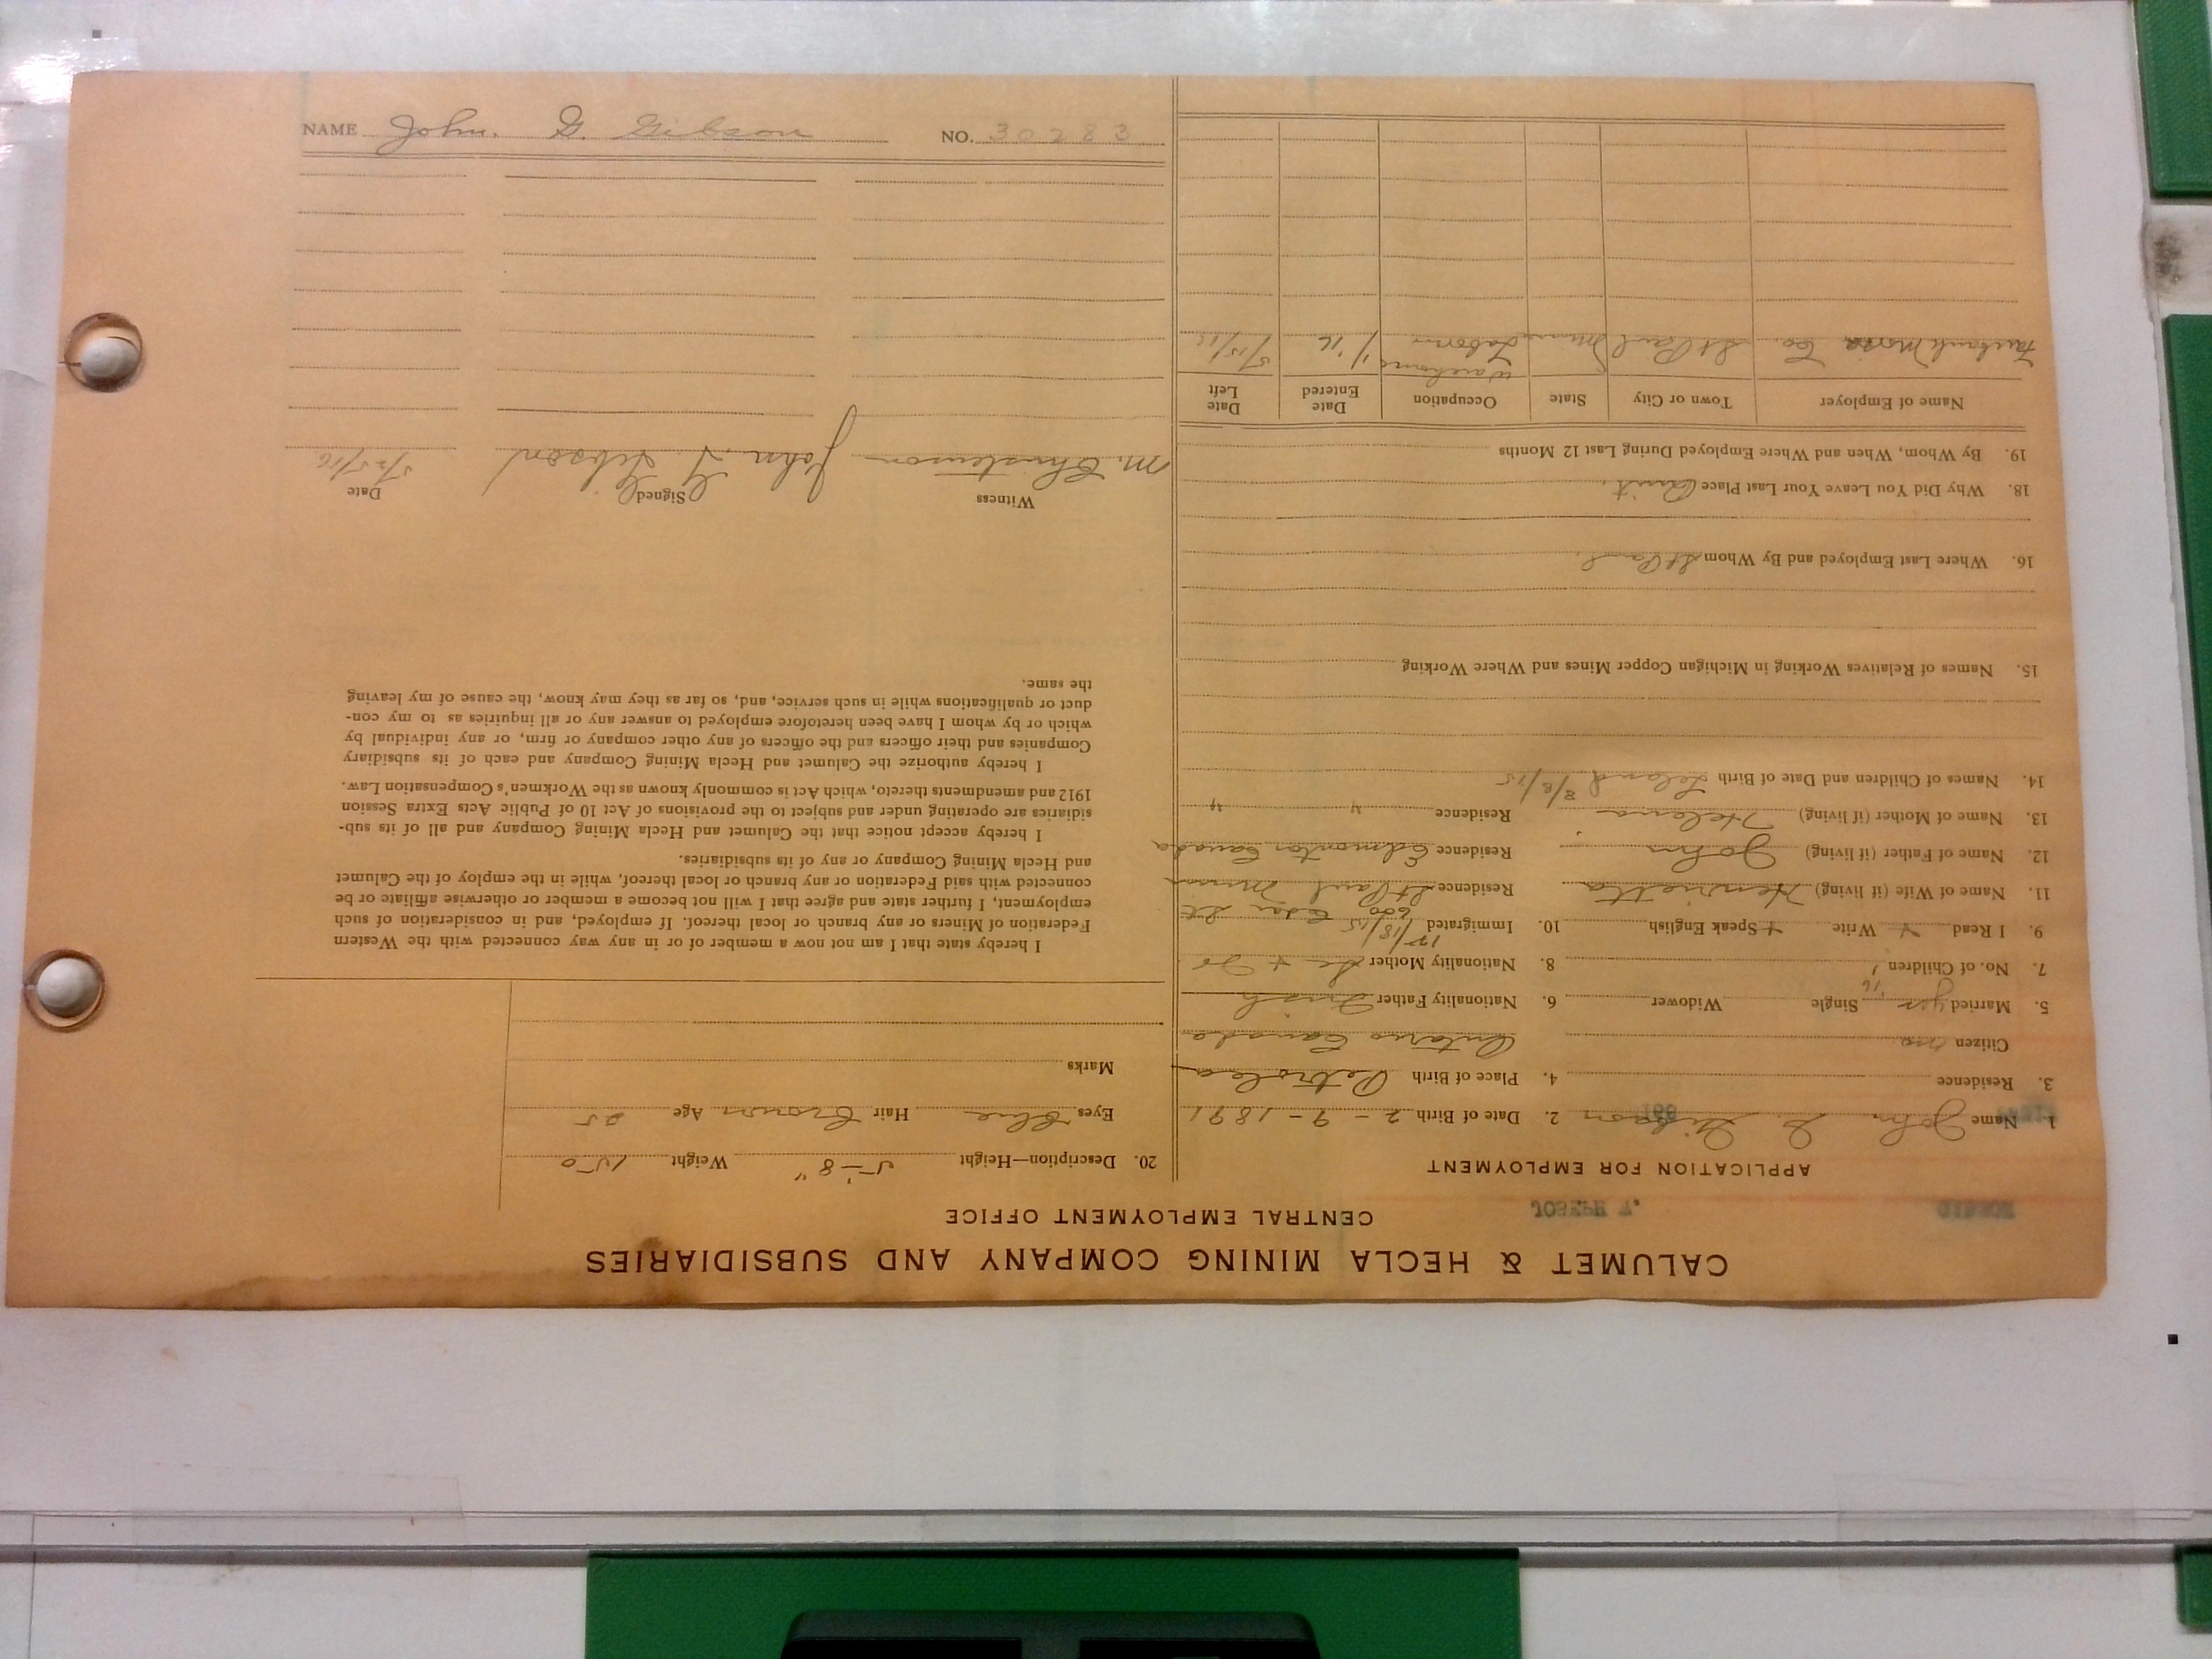 CALUMET & HECLA MINING COMPANY AND SUBSIDIARIES
CENTRAL EMPLOYMENT OFFICE
APPLICATION FOR EMPLOYMENT
1. Name John. G. Gibson 2. Date of Birth 2 - 9 - 1891
3. Residence 4. Place of Birth Petrolea
Citizen no Ontario Canada
5. Married yes Single Widower 6. Nationality Father Irish
'16
7. No. of Children 1 8. Nationality Mother Sc + Ir
9. I Read + Write + Speak English 10. Immigrated 12/18/15
600 Edar St
11. Name of Wife (if living) Henrietta Residence St Paul Minn
12. Name of Father (if living) John Residence Edmonton Canada
13. Name of Mother (if living) Helena Residence " "
14. Names of Children and Date of Birth Leland 8/8/15
15. Names of Relatives Working in Michigan Copper Mines and Where Working
16. Where Last Employed and By Whom St Paul.
18. Why Did You Leave Your Last Place Quit.
19. By Whom, When and Where Employed During Last 12 Months
Name of Employer Town or City State Occupation Date Entered Date Left
Fairbank Morse Co. St Paul Minn Warehouse Labor 1/16 5/15/16
20. Description—Height 5'-8" Weight 150
Eyes Blue Hair Brown Age 25
Marks
I hereby state that I am not now a member of or in any way connected with the Western
Federation of Miners or any branch or local thereof. If employed, and in consideration of such
employment, I further state and agree that I will not become a member or otherwise affiliate or be
connected with said Federation or any branch or local thereof, while in the employ of the Calumet
and Hecla Mining Company or any of its subsidiaries.
I hereby accept notice that the Calumet and Hecla Mining Company and all of its sub-
sidiaries are operating under and subject to the provisions of Act 10 of Public Acts Extra Session
1912 and amendments thereto, which Act is commonly known as the Workmen's Compensation Law.
I hereby authorize the Calumet and Hecla Mining Company and each of its subsidiary
Companies and their officers and the officers of any other company or firm, or any individual by
which or by whom I have been heretofore employed to answer any or all inquiries as to my con-
duct or qualifications while in such service, and, so far as they may know, the cause of my leaving
the same.
Witness Signed Date
M. Christenson John G. Gibson 5/25/16
NAME John. G. Gibson NO. 30283